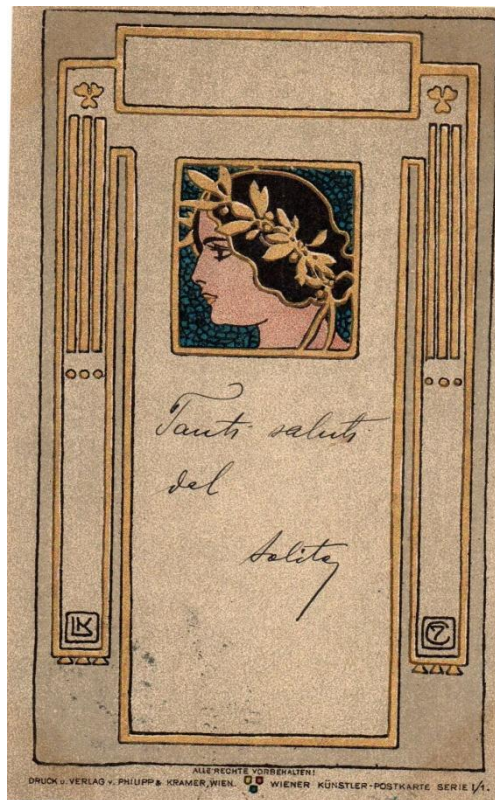 Tanti saluti
dal
solito
LK
ALLE RECHTE VORBEHALTEN!
DRUCK u. VERLAG v. PHILIPP & KRAMER, WIEN. WIENER KÜNSTLER-POSTKARTE SERIE I/1.